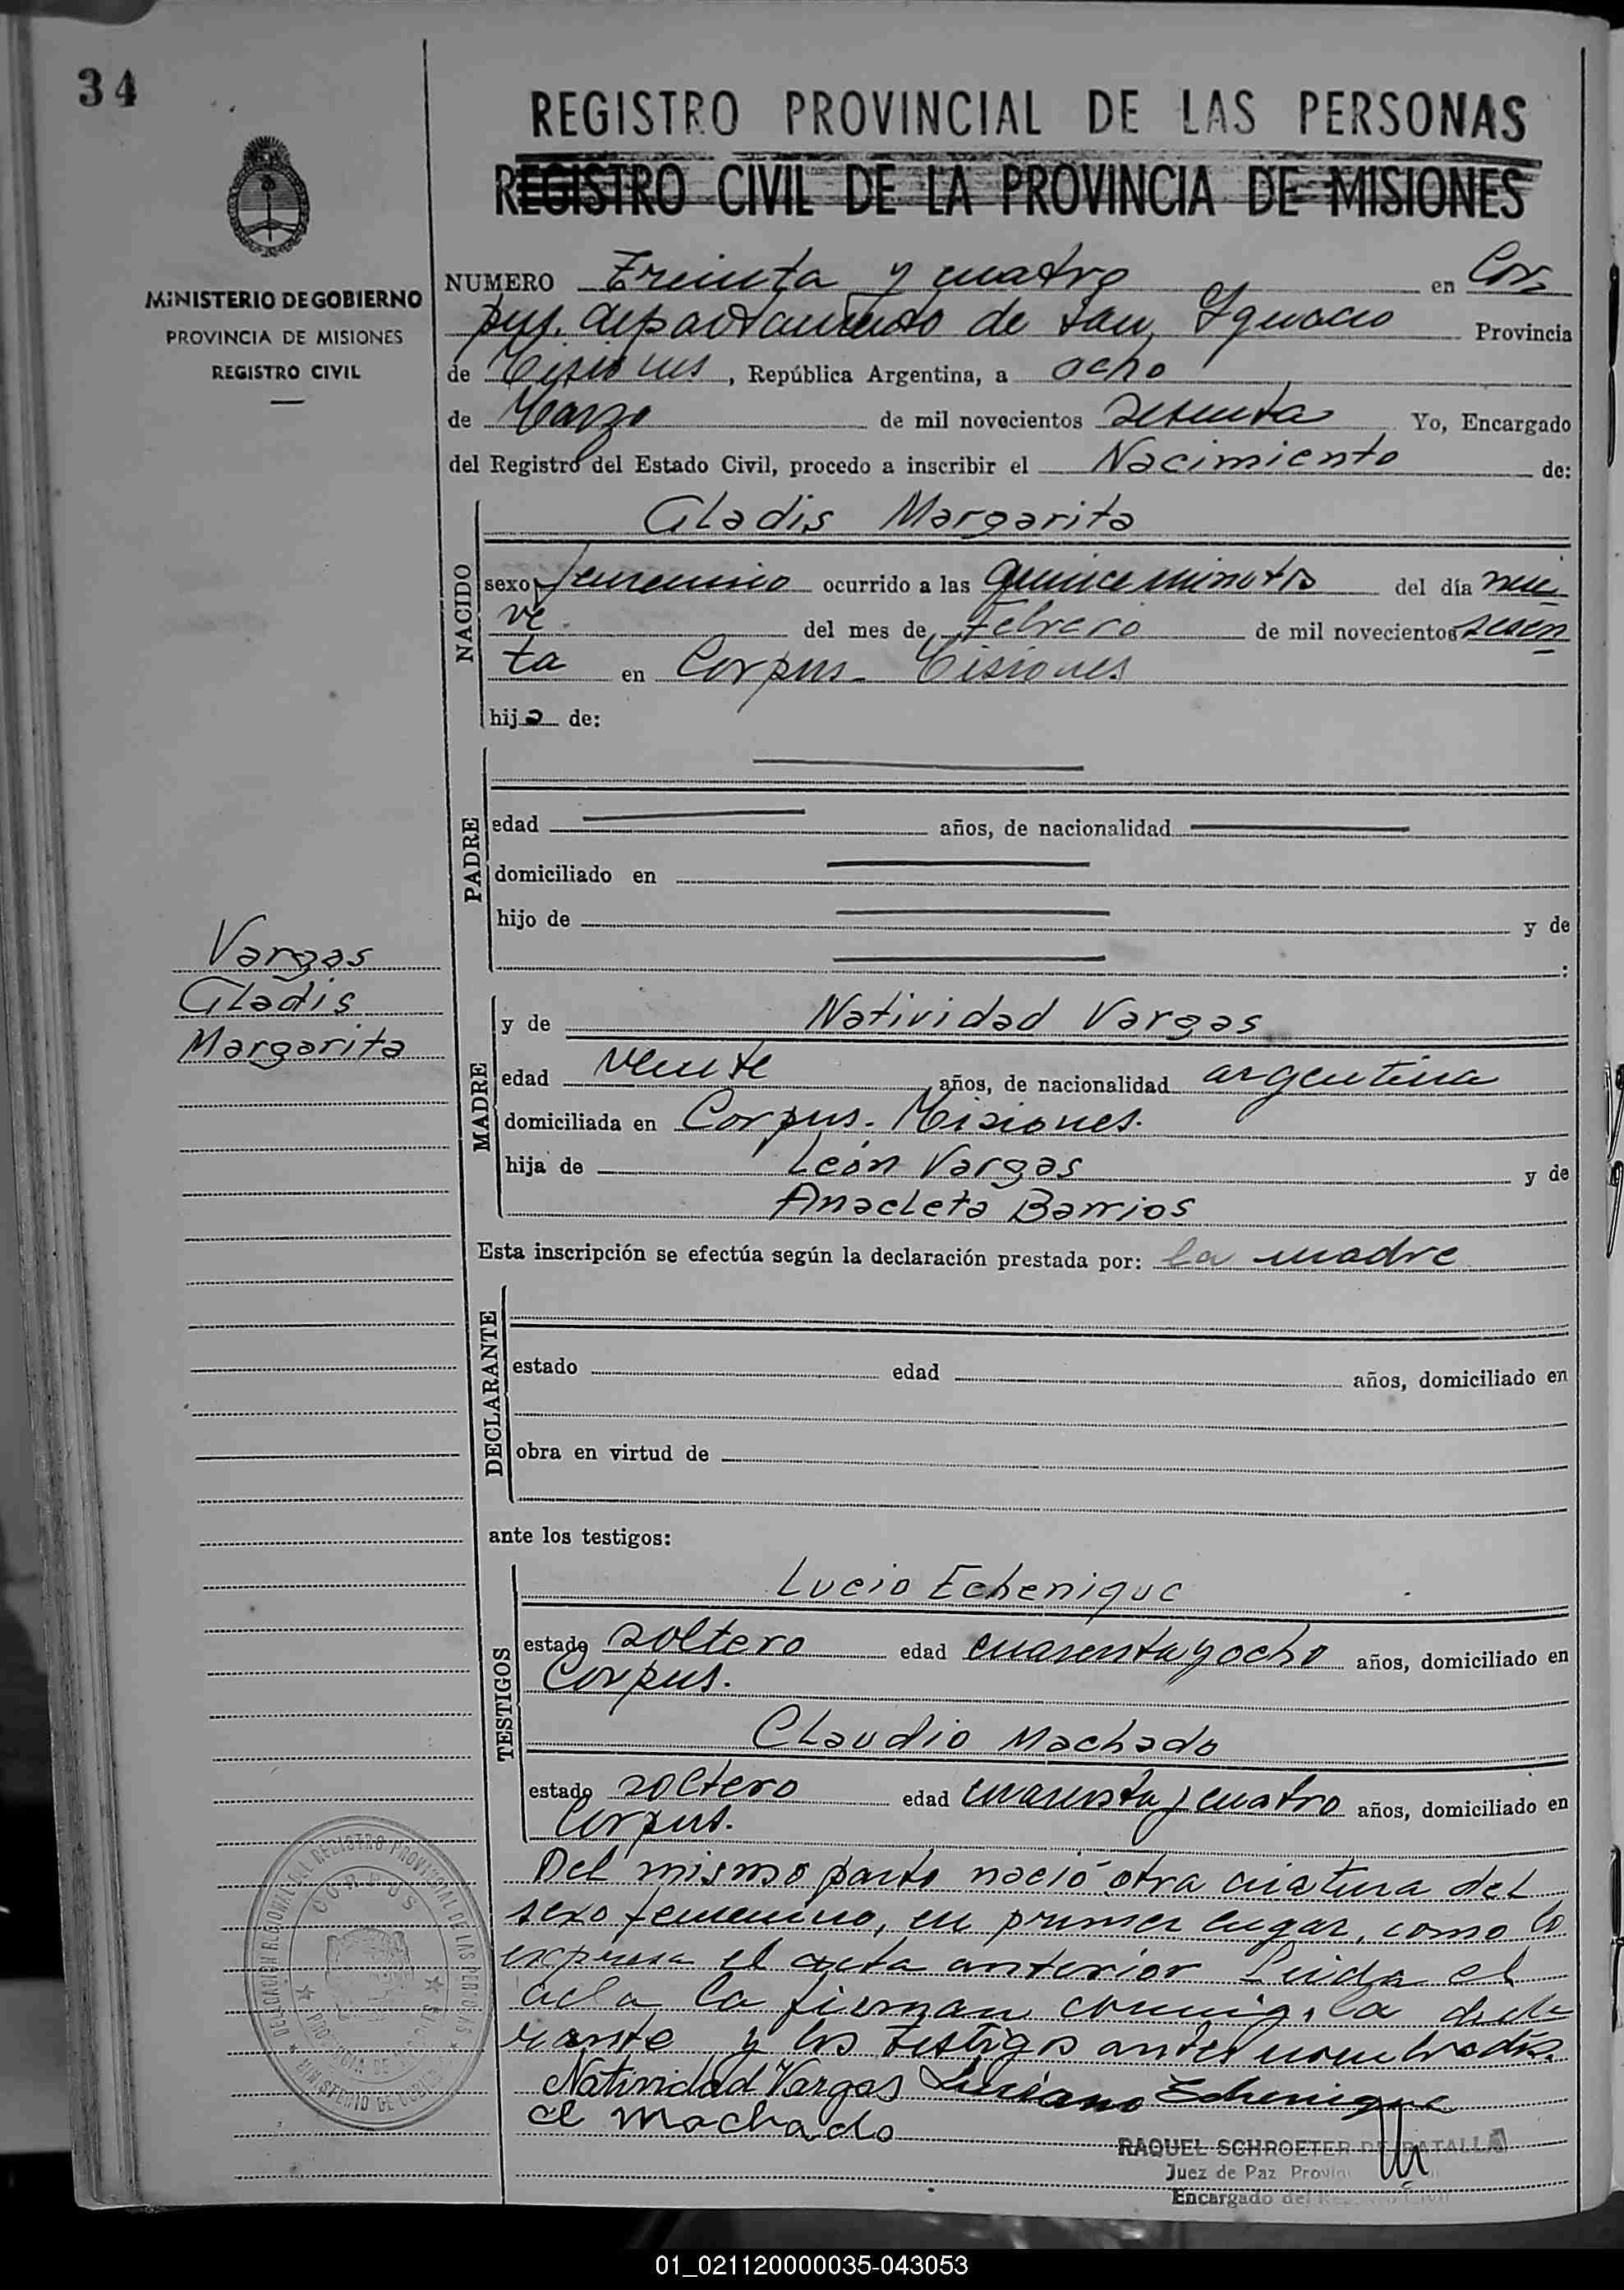 34
REGISTRO PROVINCIAL DE LAS PERSONAS
REGISTRO CIVIL DE LA PROVINCIA DE MISIONES
MINISTERIO DE GOBIERNO
PROVINCIA DE MISIONES
REGISTRO CIVIL
NUMERO Treinta y cuatro en Cor=
pus. departamento de San Ignacio Provincia
de Misiones, República Argentina, a ocho
de Marzo de mil novecientos setenta Yo, Encargado
del Registro del Estado Civil, procedo a inscribir el Nacimiento de:
NACIDO
Gladis Margarita
sexo femenino ocurrido a las quince minutos del día nue
ve del mes de Febrero de mil novecientos seten
ta en Corpus - Misiones
hija de:
PADRE
edad años, de nacionalidad
domiciliado en
hijo de y de
:
Vargas
Gladis
Margarita
MADRE
y de Natividad Vargas
edad veinte años, de nacionalidad argentina
domiciliada en Corpus. Misiones.
hija de León Vargas y de
Anacleta Barrios
Esta inscripción se efectúa según la declaración prestada por: la madre
DECLARANTE
estado edad años, domiciliado en
obra en virtud de
ante los testigos:
TESTIGOS
Lucio Echenique
estado soltero edad cuarenta y ocho años, domiciliado en
Corpus.
Claudio Machado
estado soltero edad cuarenta y cuatro años, domiciliado en
Corpus.
Del mismo parto nació otra criatura del
sexo femenino, en primer lugar, como lo
expresa el acta anterior Leida el
acta la firman conmigo, la decla
rante y los testigos antes nombrados.
Natividad Vargas Luciano Echenique
cl machado
RAQUEL SCHROETER DE BATALLA
Juez de Paz
Encargado del
DELEGACION REGIONAL DEL REGISTRO PROVINCIAL DE LAS PERSONAS
CORPUS
PROVINCIA DE MISIONES
MINISTERIO DE GOBIERNO
01_021120000035-043053